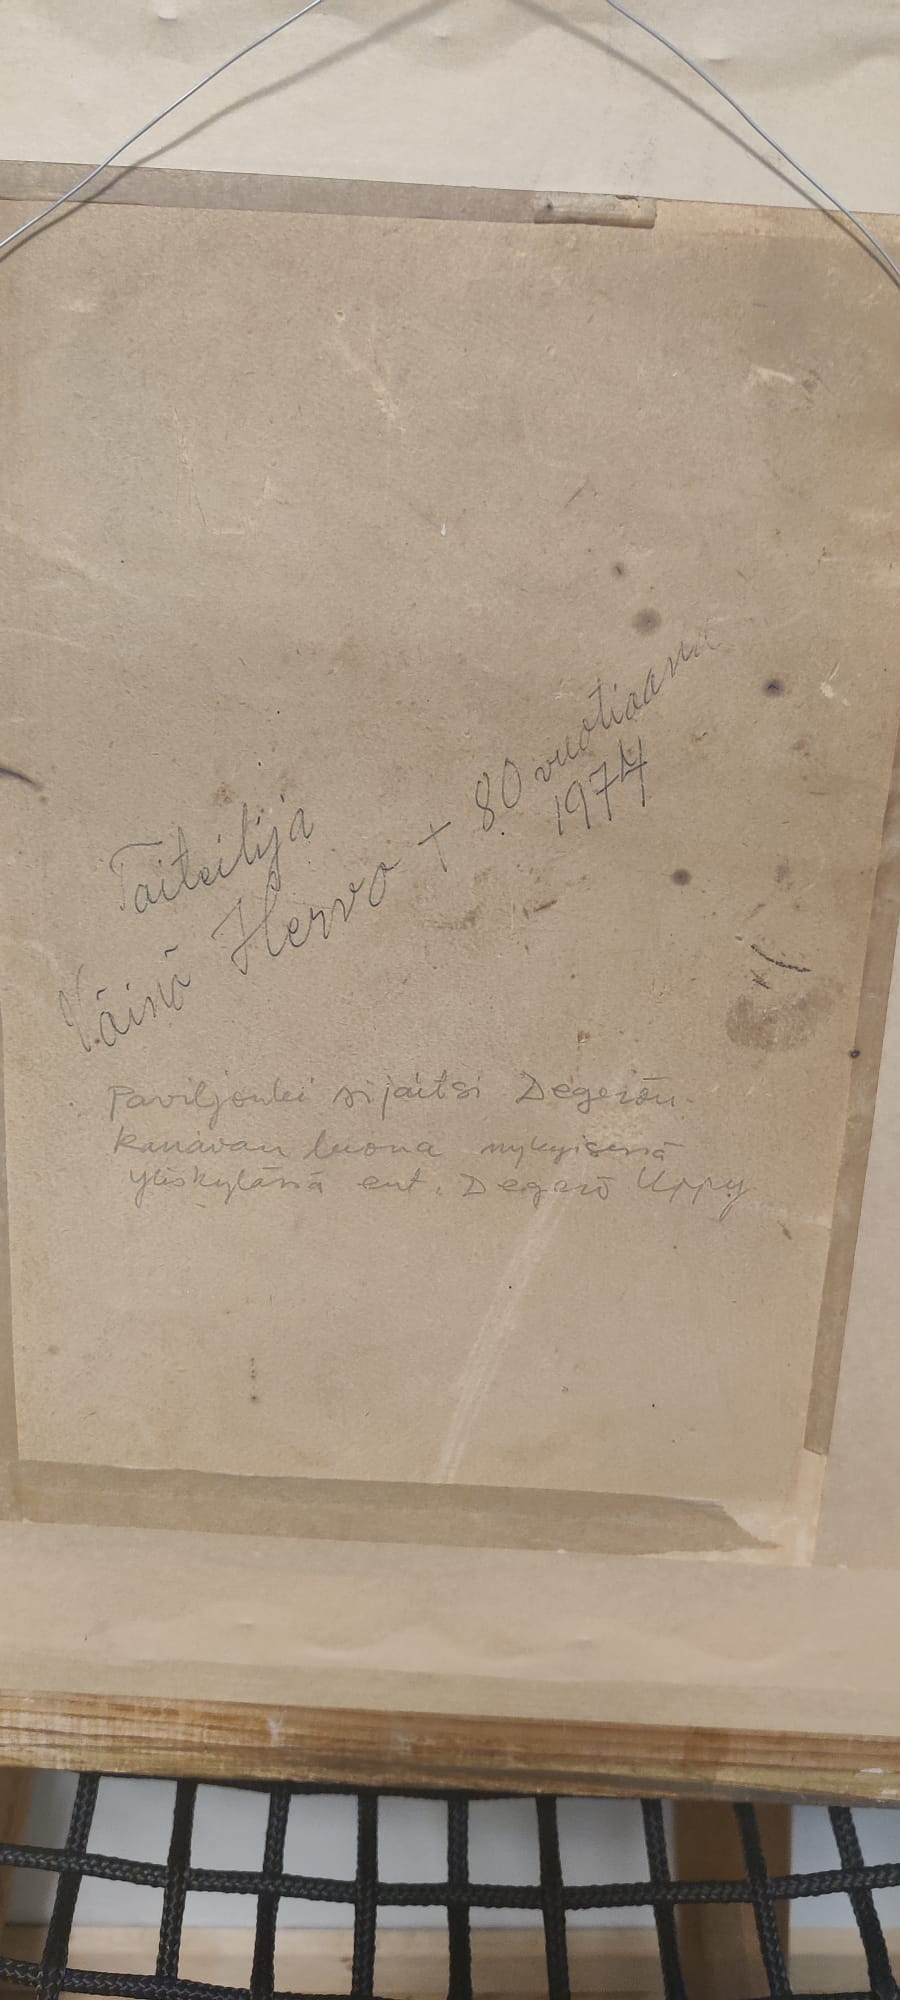 Taiteilija
Väinö Hervo + 80 vuotiaana
1974
Paviljonki sijaitsi Degerön-
kanavan luona nykyisessä
yliskylässä ent. Degerö Uppby